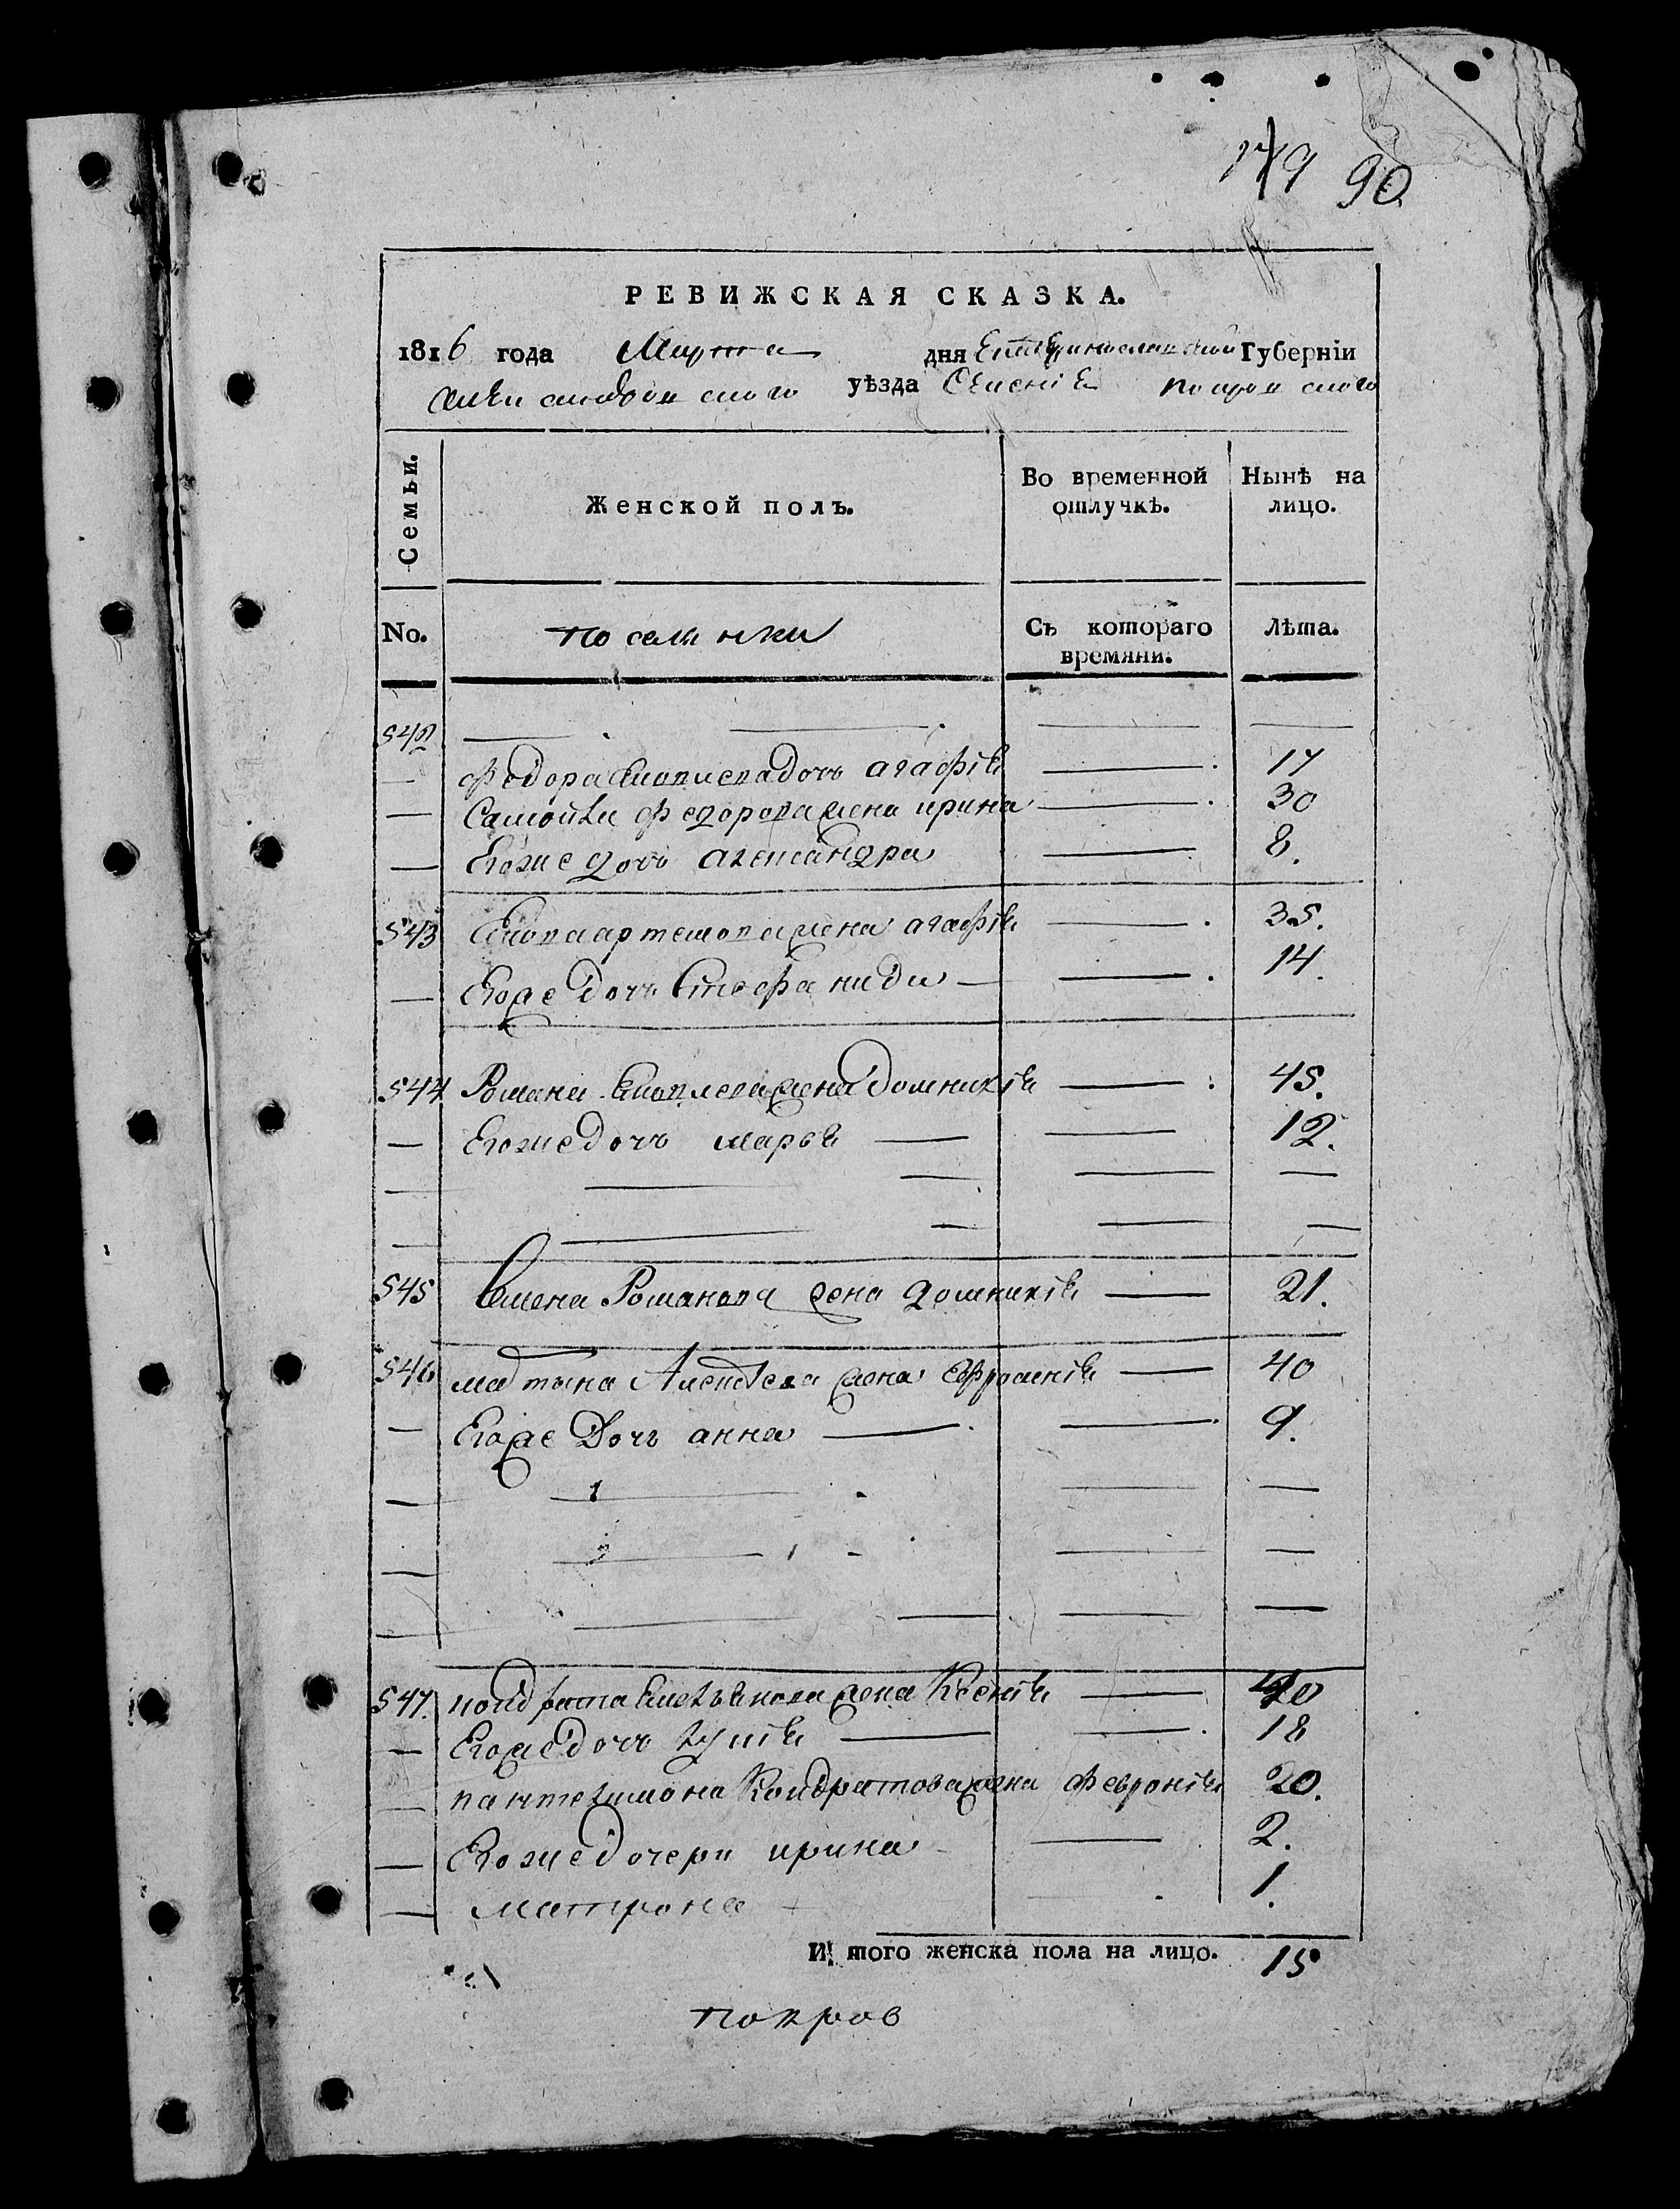 179 90
РЕВИЖСКАЯ СКАЗКА.
1816 года Марта дня Екатеринославской Губернїи
александровского уѣзда Селенїя покровского
Семьи. Женской полъ. Во временной отлучкѣ. Нынѣ на лицо.
No. поселянки Съ котораго времяни. Лѣта.
542
— федора Яковлева дочь агафїя — 17
— Самойла федорова жена ирина — 30
— Егоже дочь александра — 8.
543 Якова артемова жена агафїя — 35.
— Егоже дочь Стефанида — 14.
544 Романа Яковлева жена Домникїя — 45.
— Егоже дочь марья — 12.
545 Семена Романова жена домникїя — 21.
546 мартына Алексеева жена Ефросенїя — 40
— Егоже Дочь анна — 9.
547. кондрата Емельянова жена Ксенїя — 40
— Егоже дочь — 18
— пантелимона Кондратова жена февронїя 20.
— Егоже дочери ирина — 2.
— матрона — 1.
И того женска пола на лицо. 15
покров